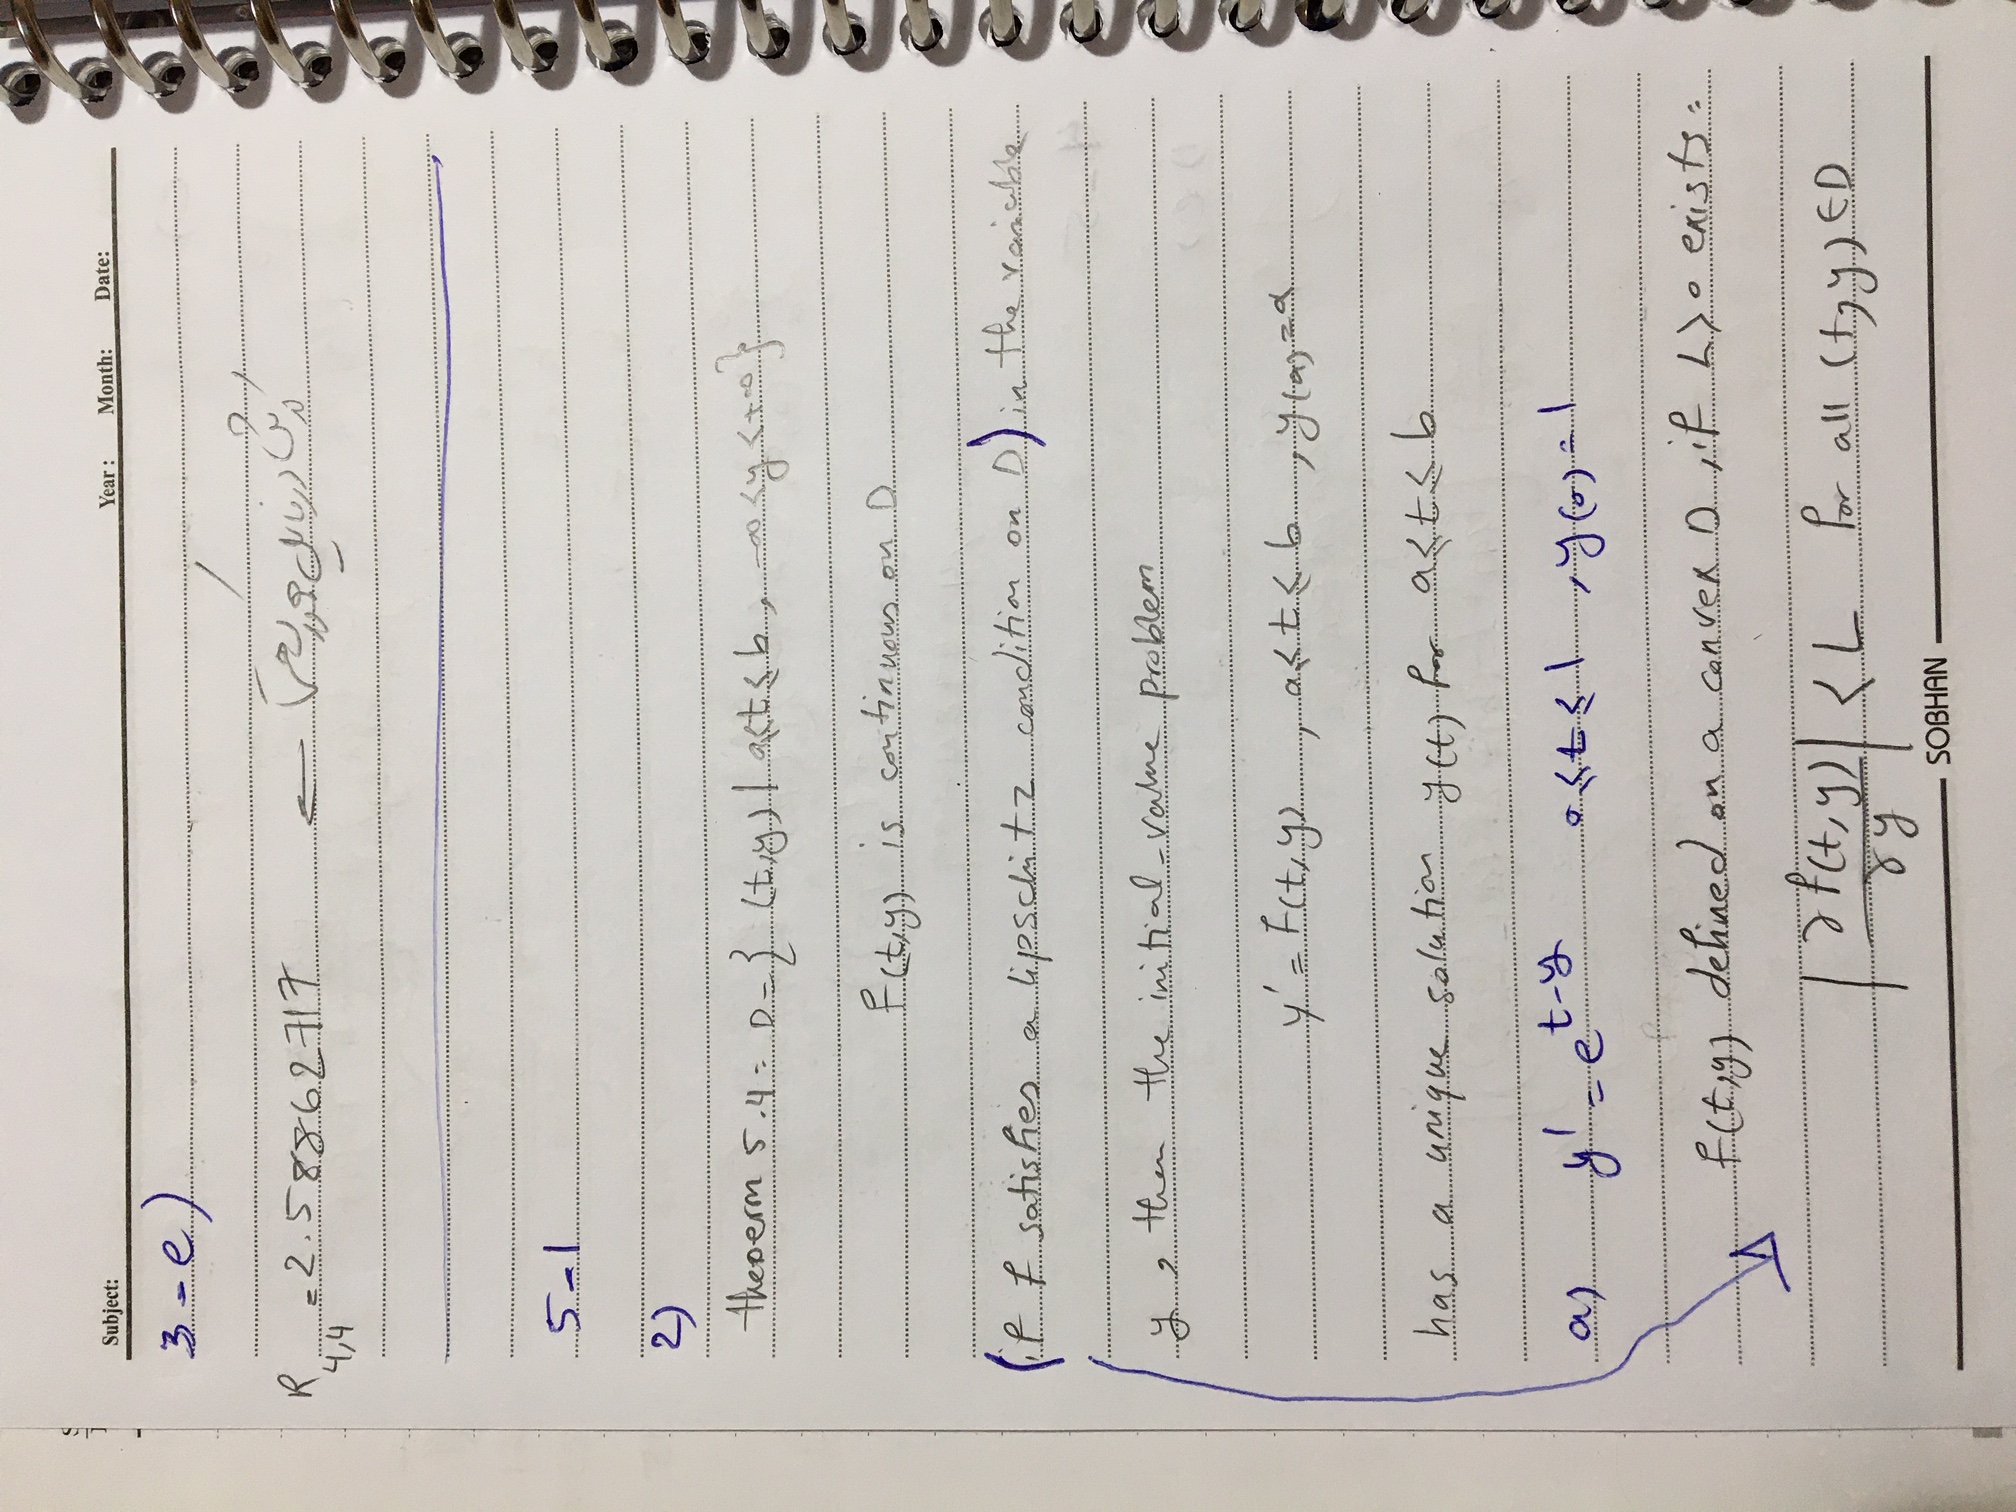 Subject: Year: Month: Date:
3-e)
R4,4 = 2.58862717 ←
5-1
2)
theoerm 5.4: D={ (t,y) | a≤t≤b, -∞<y<+∞}
f(t,y) is continuous on D
(if f satisfies a lipschitz condition on D) in the variable
y, then the initial-value problem
y' = f(t,y) , a≤t≤b , y(a)=α
has a unique solution y(t) for a≤t≤b
a) y' = e^(t-y) 0≤t≤1 , y(0)=1
f(t,y) defined on a convex D, if L>0 exists:
|∂f(t,y)/∂y| < L for all (t,y)∈D
SOBHAN